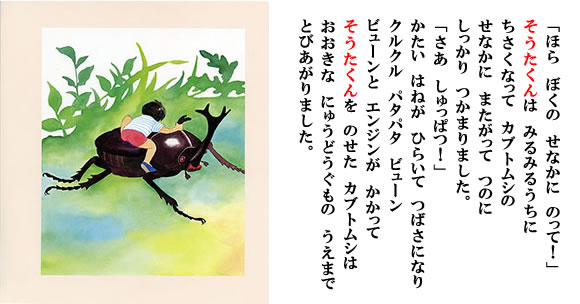 「ほら　ぼくの　せなかに　のって！」
そうたくんは　みるみるうちに
ちさくなって　カブトムシの
せなかに　またがって　つのに
しっかり　つかまりました。
「さあ　しゅっぱつ！」
かたい　はねが　ひらいて　つばさになり
クルクル　パタパタ　ビューン
ビューンと　エンジンが　かかって
そうたくんを　のせた　カブトムシは
おおきな　にゅうどうぐもの　うえまで
とびあがりました。